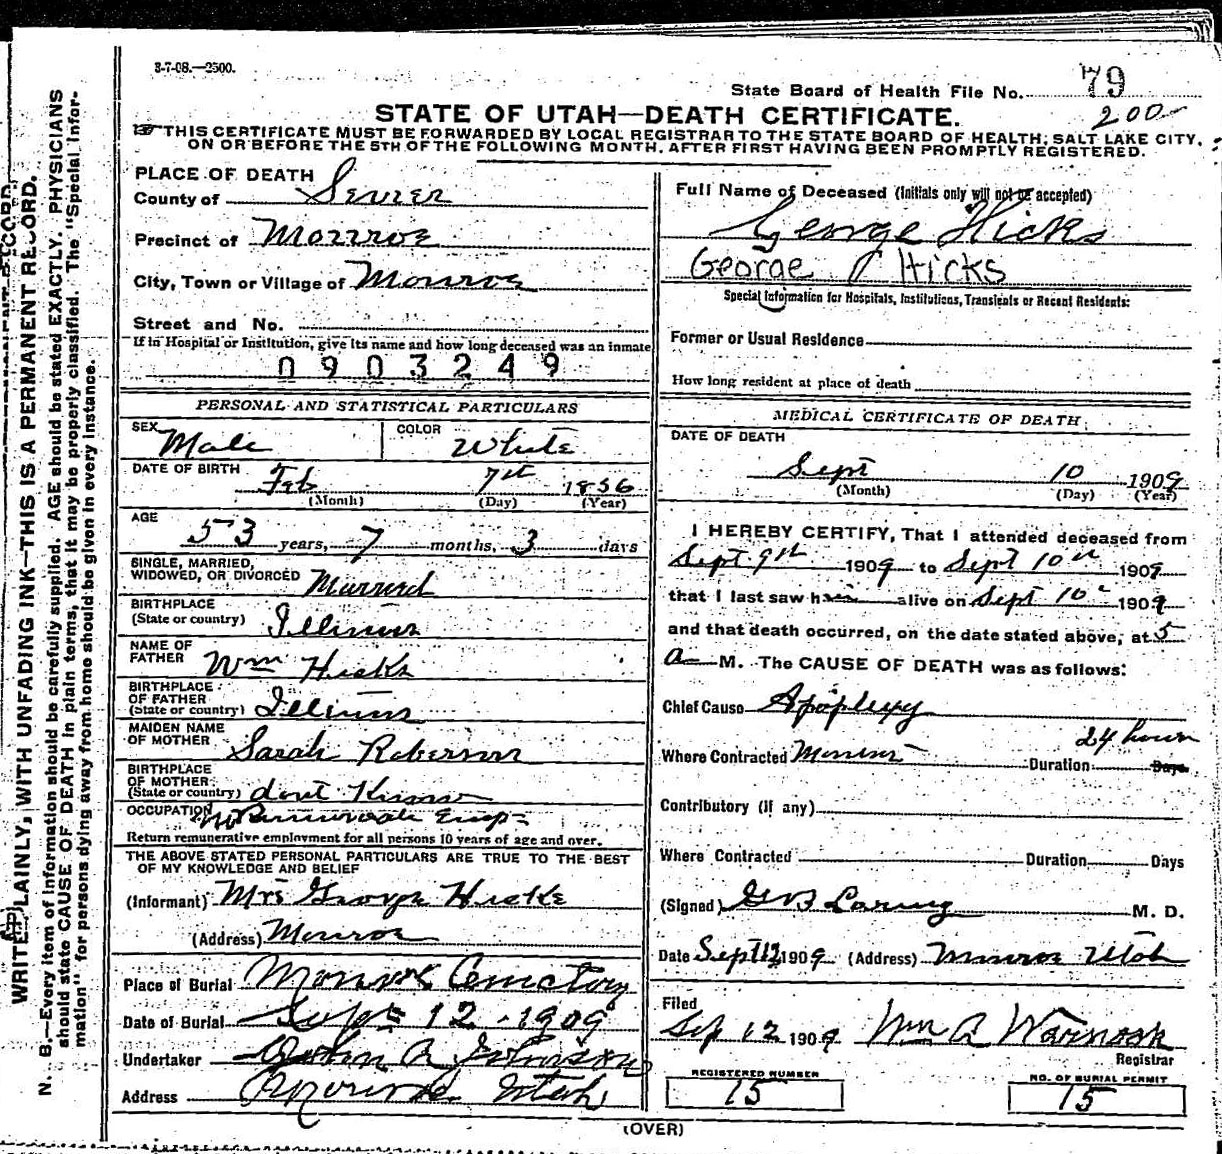 3-7-08.—2500.
State Board of Health File No. 79
200-
STATE OF UTAH—DEATH CERTIFICATE.
☞ THIS CERTIFICATE MUST BE FORWARDED BY LOCAL REGISTRAR TO THE STATE BOARD OF HEALTH, SALT LAKE CITY,
ON OR BEFORE THE 5TH OF THE FOLLOWING MONTH, AFTER FIRST HAVING BEEN PROMPTLY REGISTERED.
WRITE PLAINLY, WITH UNFADING INK—THIS IS A PERMANENT RECORD.
N. B.—Every item of information should be carefully supplied. AGE should be stated EXACTLY. PHYSICIANS
should state CAUSE OF DEATH in plain terms, that it may be properly classified. The "Special Infor-
mation" for persons dying away from home should be given in every instance.
PLACE OF DEATH
County of Sevier
Precinct of Monroe
City, Town or Village of Monroe
Street and No.
If in Hospital or Institution, give its name and how long deceased was an inmate
0903249
PERSONAL AND STATISTICAL PARTICULARS
SEX Male COLOR White
DATE OF BIRTH Feb 7th 1856
(Month) (Day) (Year)
AGE 53 years, 7 months, 3 days
SINGLE, MARRIED,
WIDOWED, OR DIVORCED Married
BIRTHPLACE
(State or country) Illinois
NAME OF
FATHER Wm Hicks
BIRTHPLACE
OF FATHER
(State or country) Illinois
MAIDEN NAME
OF MOTHER Sarah Roberson
BIRTHPLACE
OF MOTHER
(State or country) dont Know
OCCUPATION
Return remunerative employment for all persons 10 years of age and over.
THE ABOVE STATED PERSONAL PARTICULARS ARE TRUE TO THE BEST
OF MY KNOWLEDGE AND BELIEF
(Informant) Mrs George Hicks
(Address) Monroe
Place of Burial Monroe Cemetery
Date of Burial Sept 12 - 1909
Undertaker
Address Monroe Utah
Full Name of Deceased (Initials only will not be accepted)
George Hicks
George Hicks
Special Information for Hospitals, Institutions, Transients or Recent Residents:
Former or Usual Residence
How long resident at place of death
MEDICAL CERTIFICATE OF DEATH
DATE OF DEATH
Sept 10 1909
(Month) (Day) (Year)
I HEREBY CERTIFY, That I attended deceased from
Sept 9th 1909 to Sept 10th 1909
that I last saw him alive on Sept 10th 1909
and that death occurred, on the date stated above, at 5
a M. The CAUSE OF DEATH was as follows:
Chief Cause Apoplexy
24 hours
Where Contracted Monroe Duration Days
Contributory (if any)
Where Contracted Duration Days
(Signed) G B Loring M. D.
Date Sept 12 1909 (Address) Monroe Utah
Filed
Sep 12 1909 Wm A Warnock
Registrar
REGISTERED NUMBER
15
NO. OF BURIAL PERMIT
15
(OVER)